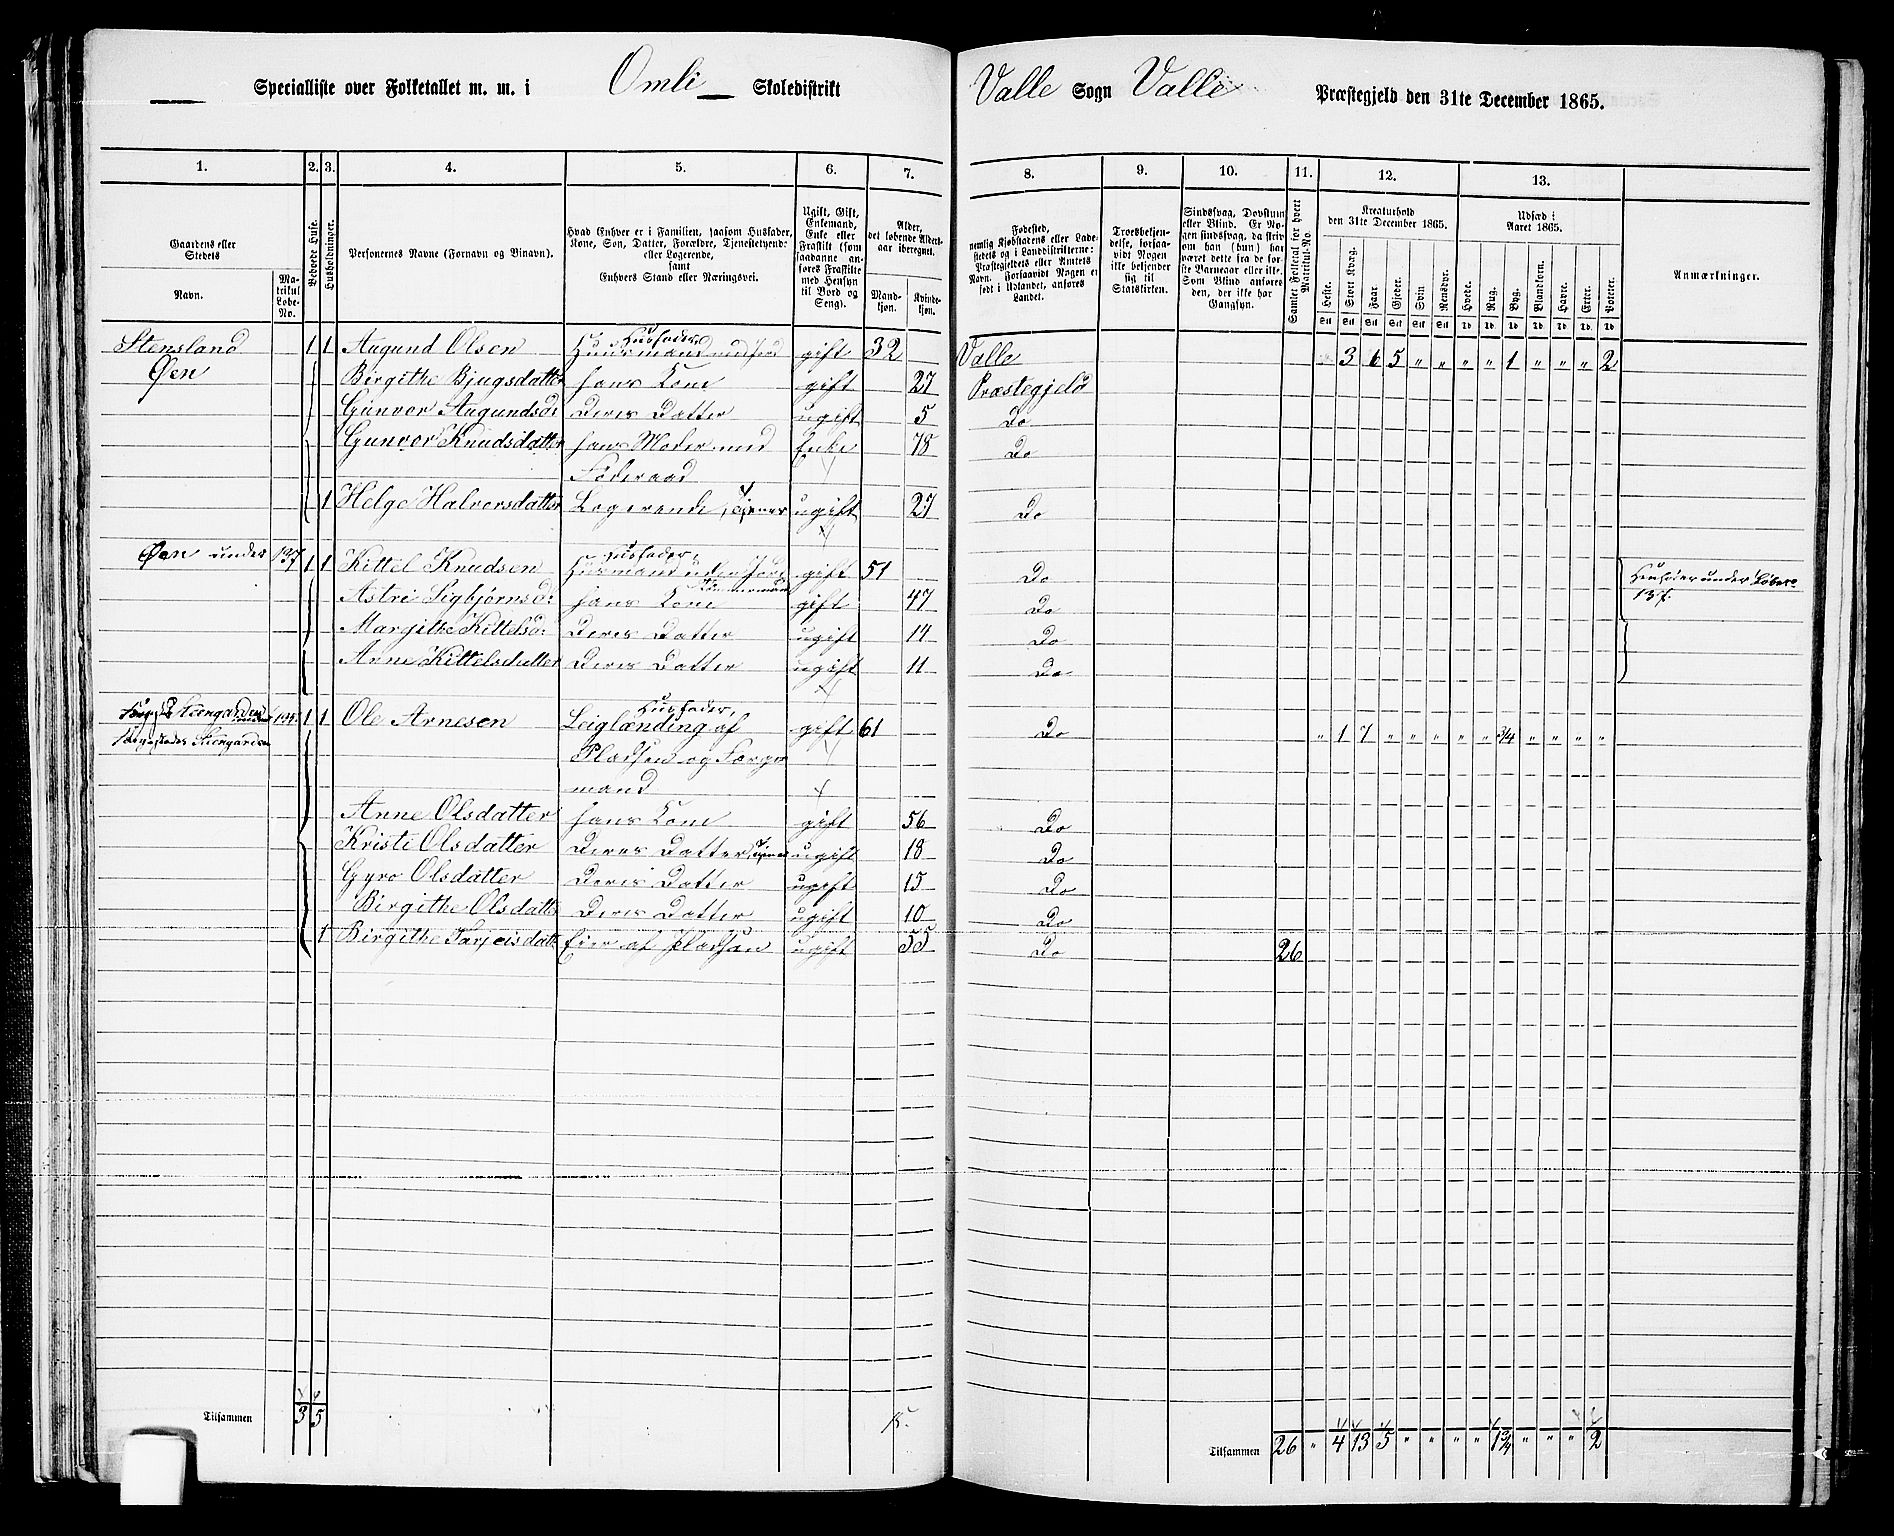 Specialliste over Folketallet m. m. i Omli Skoledistrikt Valle Sogn Valle Præstegjeld den 31te December 1865.
1. 2. 3. 4. 5. 6. 7. 8. 9. 10. 11. 12. 13.
Gaardens eller Stedets
Navn.
Matrikul Løbe-No.
Beboede Huse.
Husholdninger.
Personernes Navne (Fornavn og Binavn).
Hvad Enhver er i Familien, saasom Husfader,
Kone, Søn, Datter, Forældre, Tjenestetyende
eller Logerende,
samt
Enhvers Stand eller Næringsvei.
Ugift, Gift,
Enkemand,
Enke eller
Fraskilt (som
saadanne an-
føres Fraskilte
med Hensyn
til Bord og
Seng).
Alder,
det løbende Alders-
aar iberegnet.
Mand-
kjøn.
Kvinde-
kjøn.
Fødested,
nemlig Kjøbstadens eller Lade-
stedets og i Landdistrikterne:
Præstegjeldets eller Amtets
Navn. Forsaavidt Nogen er
født i Udlandet, anføres
Landet.
Troesbekjen-
delse, forsaa-
vidt Nogen
ikke bekjender
sig til
Statskirken.
Sindssvag, Døvstum
eller Blind. Er No-
gen sindssvag, da skriv
om han (hun) har
været dette fra de før-
ste Barneaar eller ikke.
Som Blind anføres
den, der ikke har
Gangsyn.
Samlet Folketal for hvert Matrikul-No.
Kreaturhold
den 31te December 1865.
Heste. Stort Kvæg. Faar. Gjeder. Svin. Rensdyr.
Udsæd i
Aaret 1865.
Hvede. Rug. Byg. Blandkorn. Havre. Erter. Poteter.
Anmærkninger.
Stensland 1 1 Augund Olsen Husfader, Huusmand med Jord gift 32 Valle 3 6 5 " " " " 1 " " " 2
Øen Birgithe Bjugsdatter hans Kone gift 27 Præstegjeld
Gunvor Augundsd: Deres Datter ugift 5 Do
Gunvor Knudsdatter hans Moder med Enke 78 Do
Føderaad
1 Helge Halvorsdatter Logerende, Tjener ugift 27 Do
Øen under 137 1 1 Kittel Knudsen Husfader, Husmand uden Jord gift 51 Do Henføder under Løbeno
Astri Sigbjørnsd: hans Kone gift 47 Do 137.
Margithe Kittelsd: Deres Datter ugift 14 Do
Anne Kittelsdatter Deres Datter ugift 11 Do
1 1 Ole Arnesen Husfader, Leiglænding af gift 61 Do " 1 7 " " " " " 3/4 " " " "
Pladsen og
mand
Anne Olsdatter hans Kone gift 56 Do
Kristi Olsdatter Deres Datter ugift 18 Do
Gyro Olsdatter Deres Datter ugift 15 Do
Birgithe Olsdatter Deres Datter ugift 10 Do
1 Birgithe Tarjeisdatt: Eier af Pladsen ugift 55 Do 26
Tilsammen 3 5 15. Tilsammen 26 " 4 13 5 " " " " 1 3/4 " " " 2